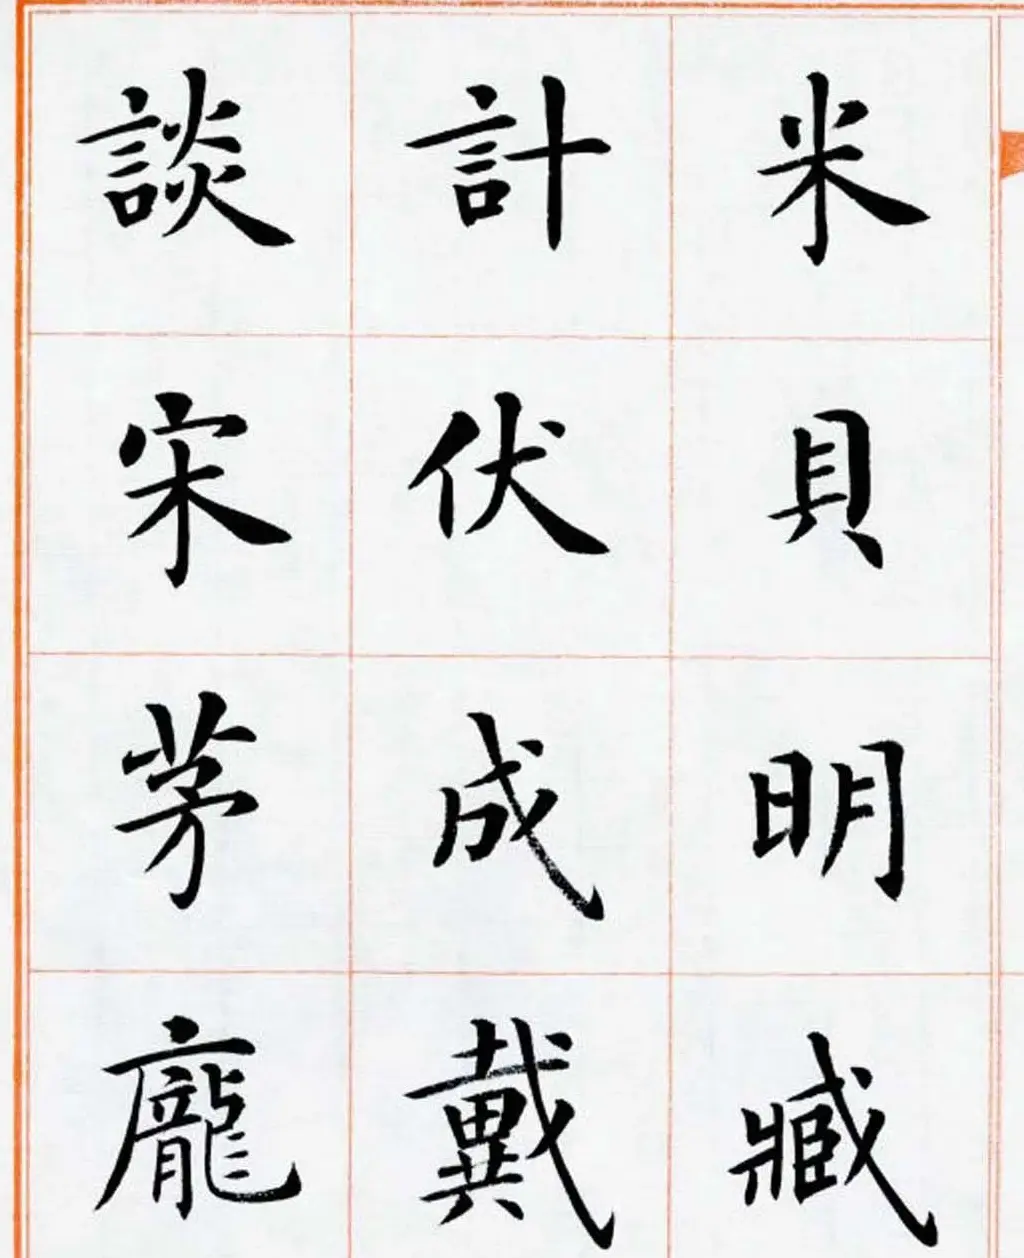 米貝明臧
計伏成戴
談宋茅龐